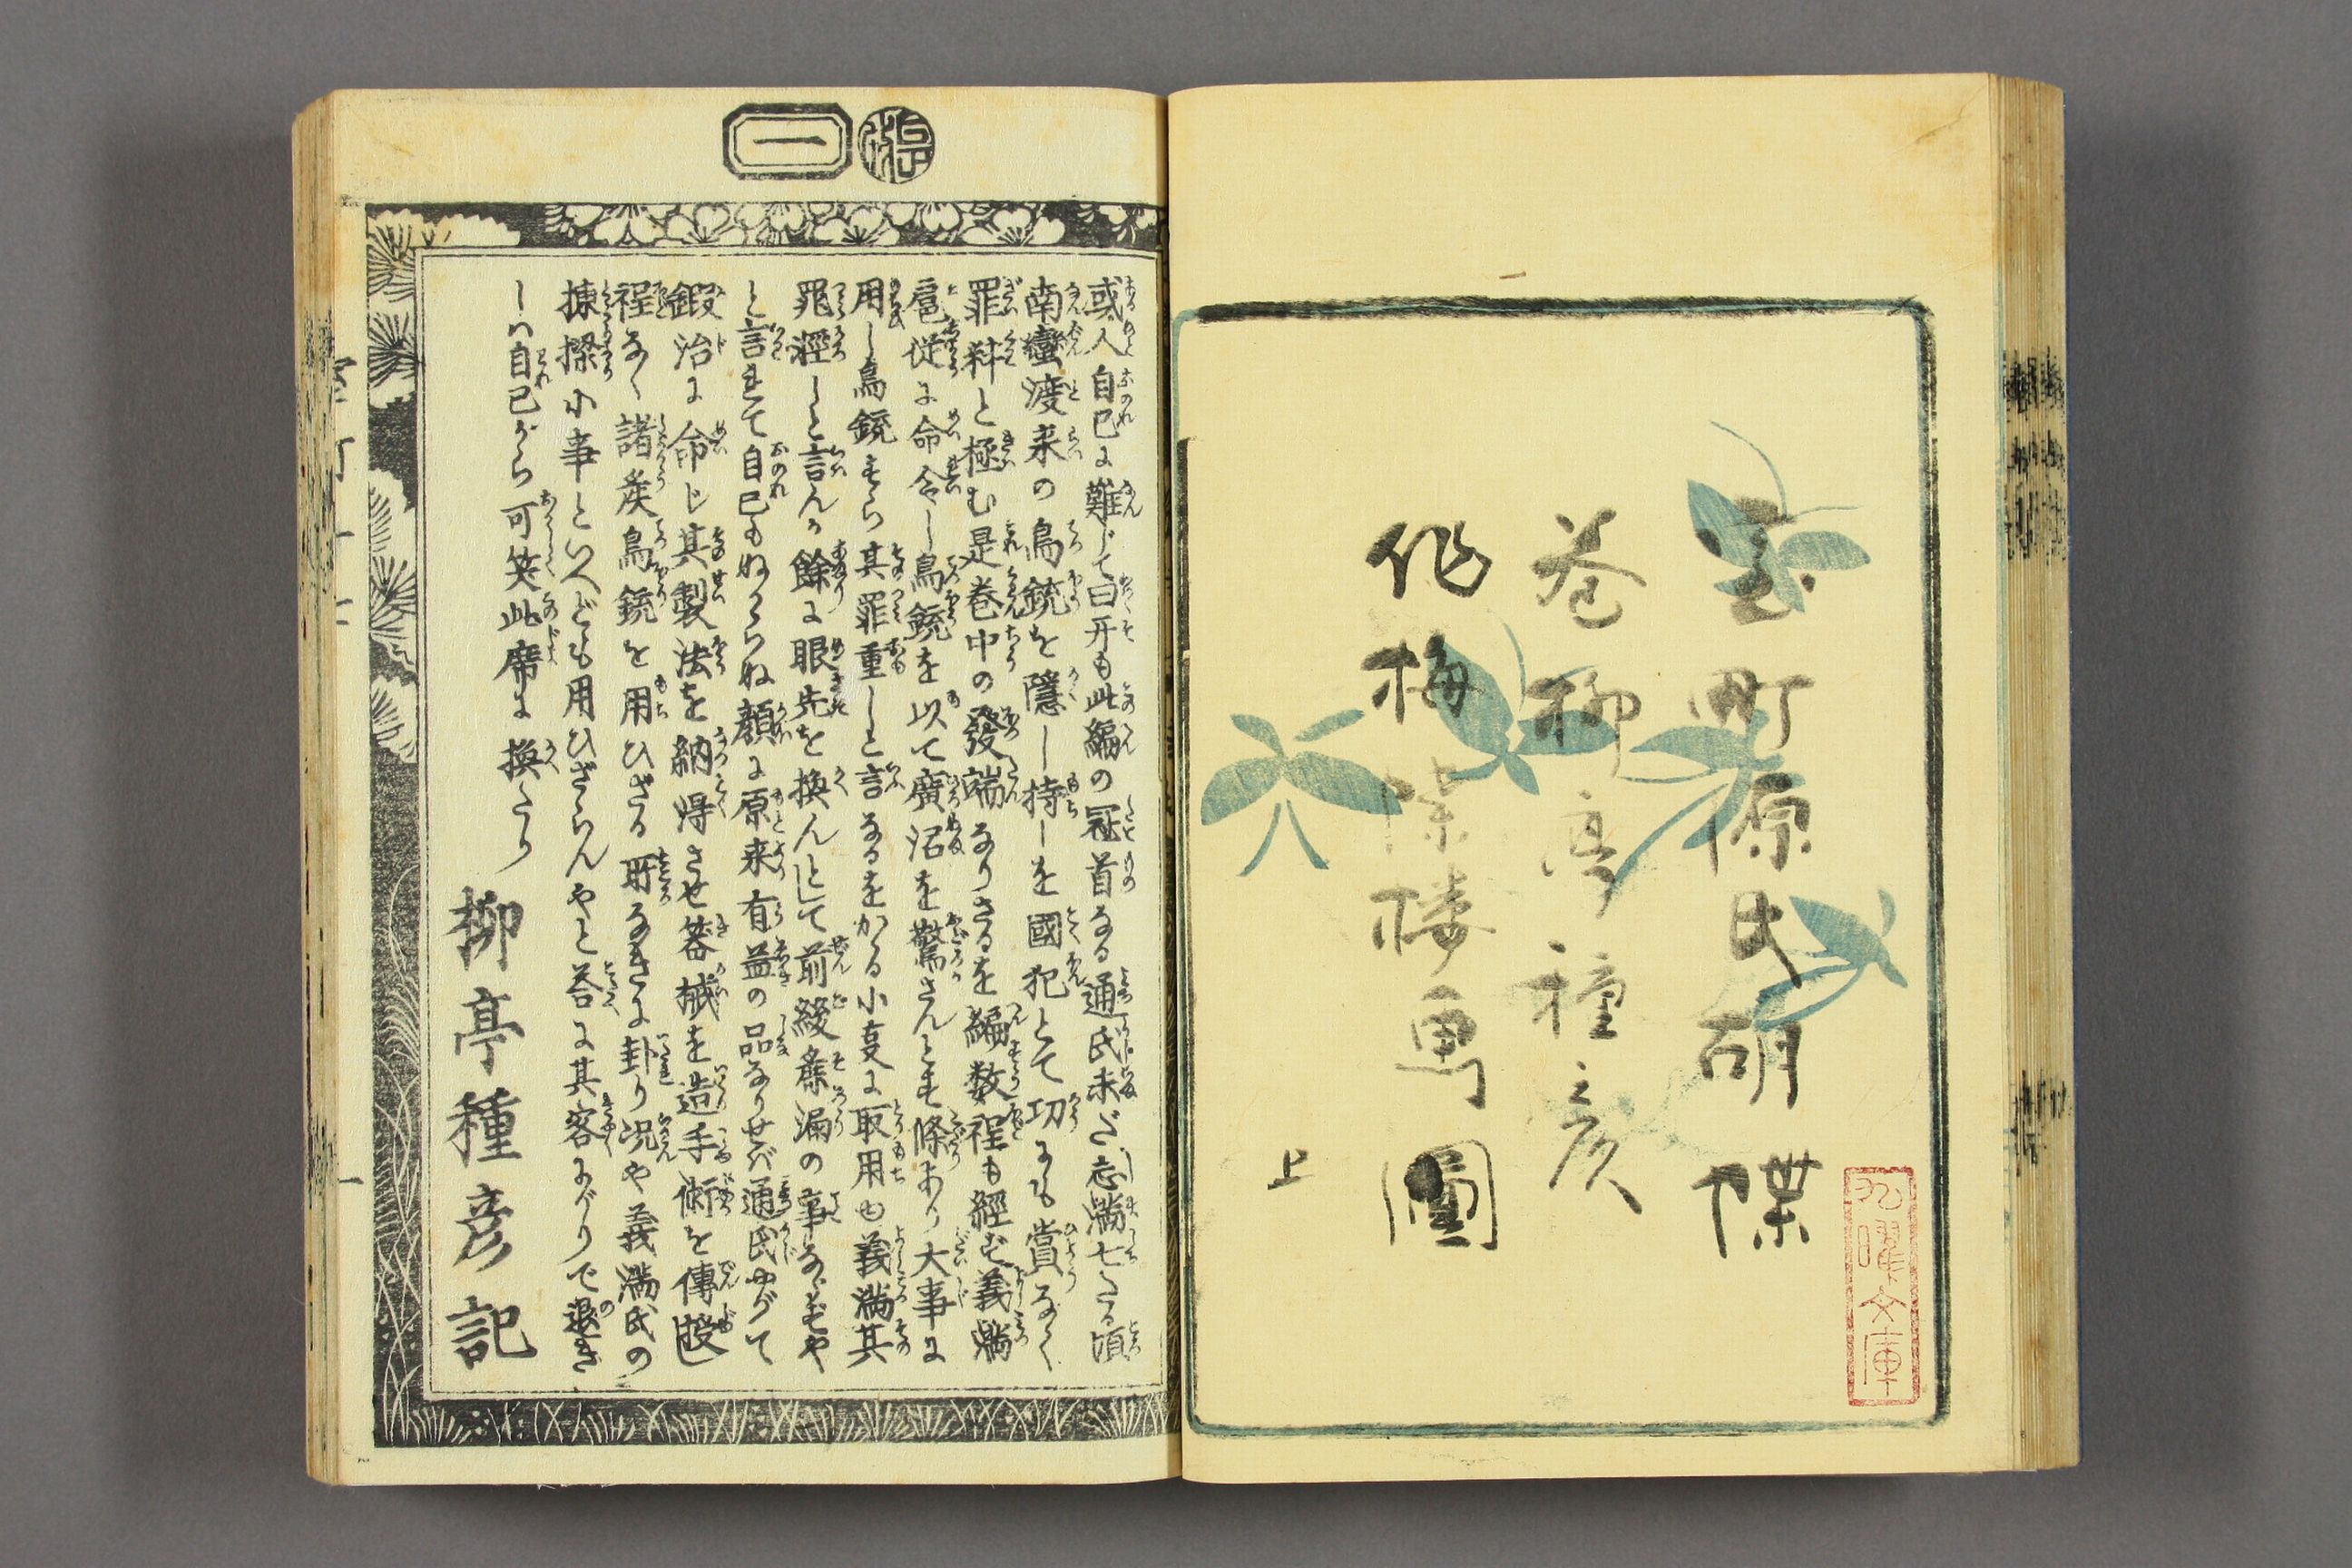 室町源氏胡蝶
巻柳亭種彦
作梅蝶楼画圖
上
九曜文庫
一
或人自己に難じて曰开も此編の冠首なる通氏未だ志満七たる頃
南蠻渡来の鳥銃を隱し持しを國犯とて功にも賞なく
罪科と極む是巻中の發端なりさるを編数程も經ず義満
扈従に命令し鳥銃を以て廣沼を驚さんとす條あり大事に
用し鳥銃すら其罪重しと言なるをかゝる小事に取用ゆ義満其
罪軽しと言んか餘に眼先を換んとして前綾麁漏の事ならずや
と言れて自己もぬからぬ顔に原来有益の品なりせば通氏やがて
鍛冶に命じ其製法を納得させ器械を造手術を傳授し
程なく諸矦鳥銃を用ひざる所なきに卦り况や義満氏の
揀擇小事といへども用ひざらんやと荅に其客まがりで退き
しハ自己がら可笑此席に換たり
柳亭種彦記